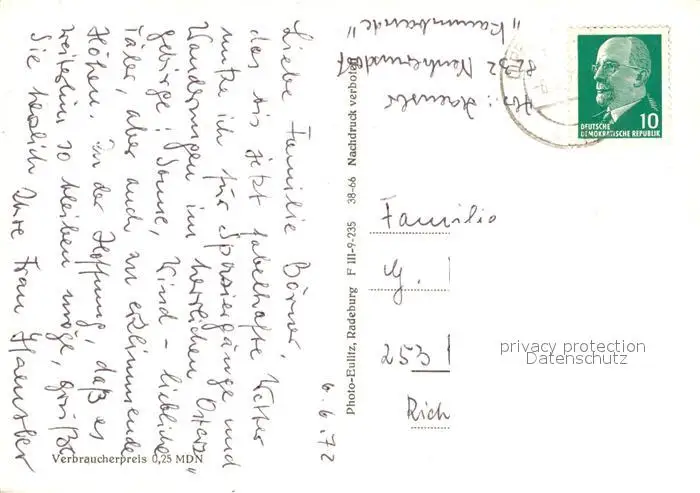 6.6.72
Liebe Familie Börner,
das bis jetzt fabelhafte Wetter
nutze ich für Spaziergänge und
Wanderungen im herrlichen Osterz-
gebirge: Sonne, Wind - liebliche
Täler, aber auch zu erklimmende
Höhen. In der Hoffnung, daß es
weiterhin so bleiben möge, grüßt
Sie herzlich Ihre Frau
Verbraucherpreis 0,25 MDN
Photo-Eulitz, Radeburg F III-9-235 38-66 Nachdruck verboten
8232
DEUTSCHE
DEMOKRATISCHE REPUBLIK
10
Familie
G.
253
Rich
privacy protection
Datenschutz